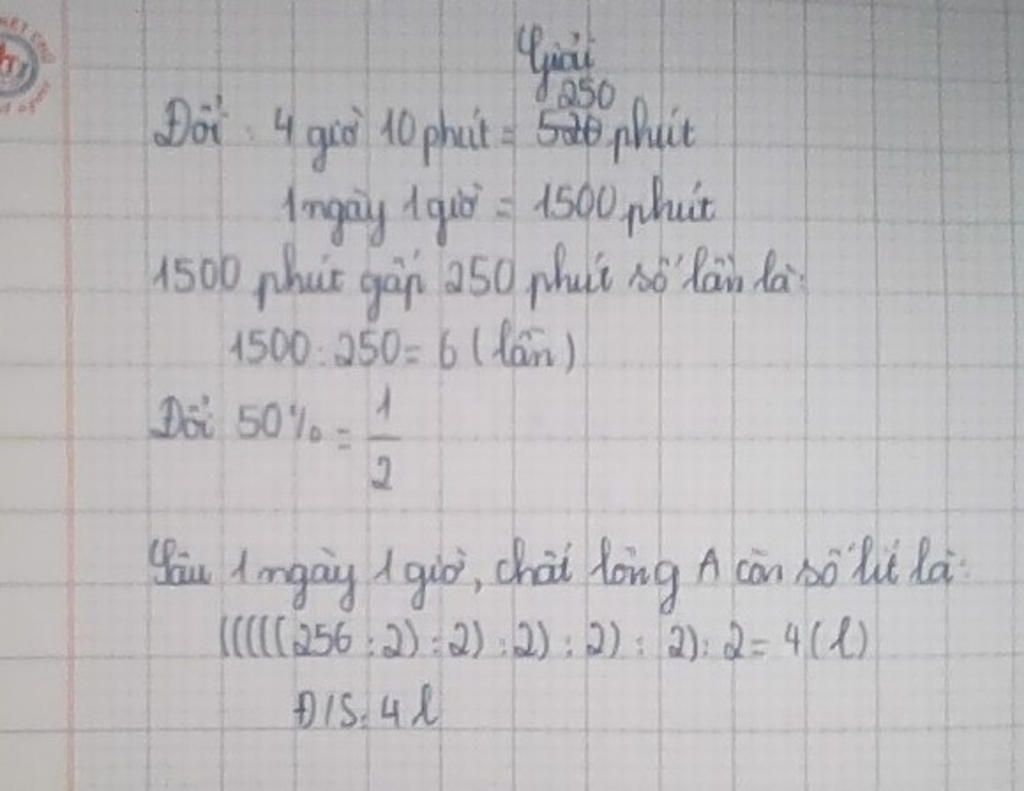 Giải
250
Đổi: 4 giờ 10 phút = phút
1 ngày 1 giờ = 1500 phút
1500 phút gấp 250 phút số lần là:
1500 : 250 = 6 (lần)
Đổi 50% = 1/2
Sau 1 ngày 1 giờ, chất lỏng A còn số lít là:
(((((256 : 2) : 2) : 2) : 2) : 2) : 2 = 4 (l)
Đ/S: 4 l